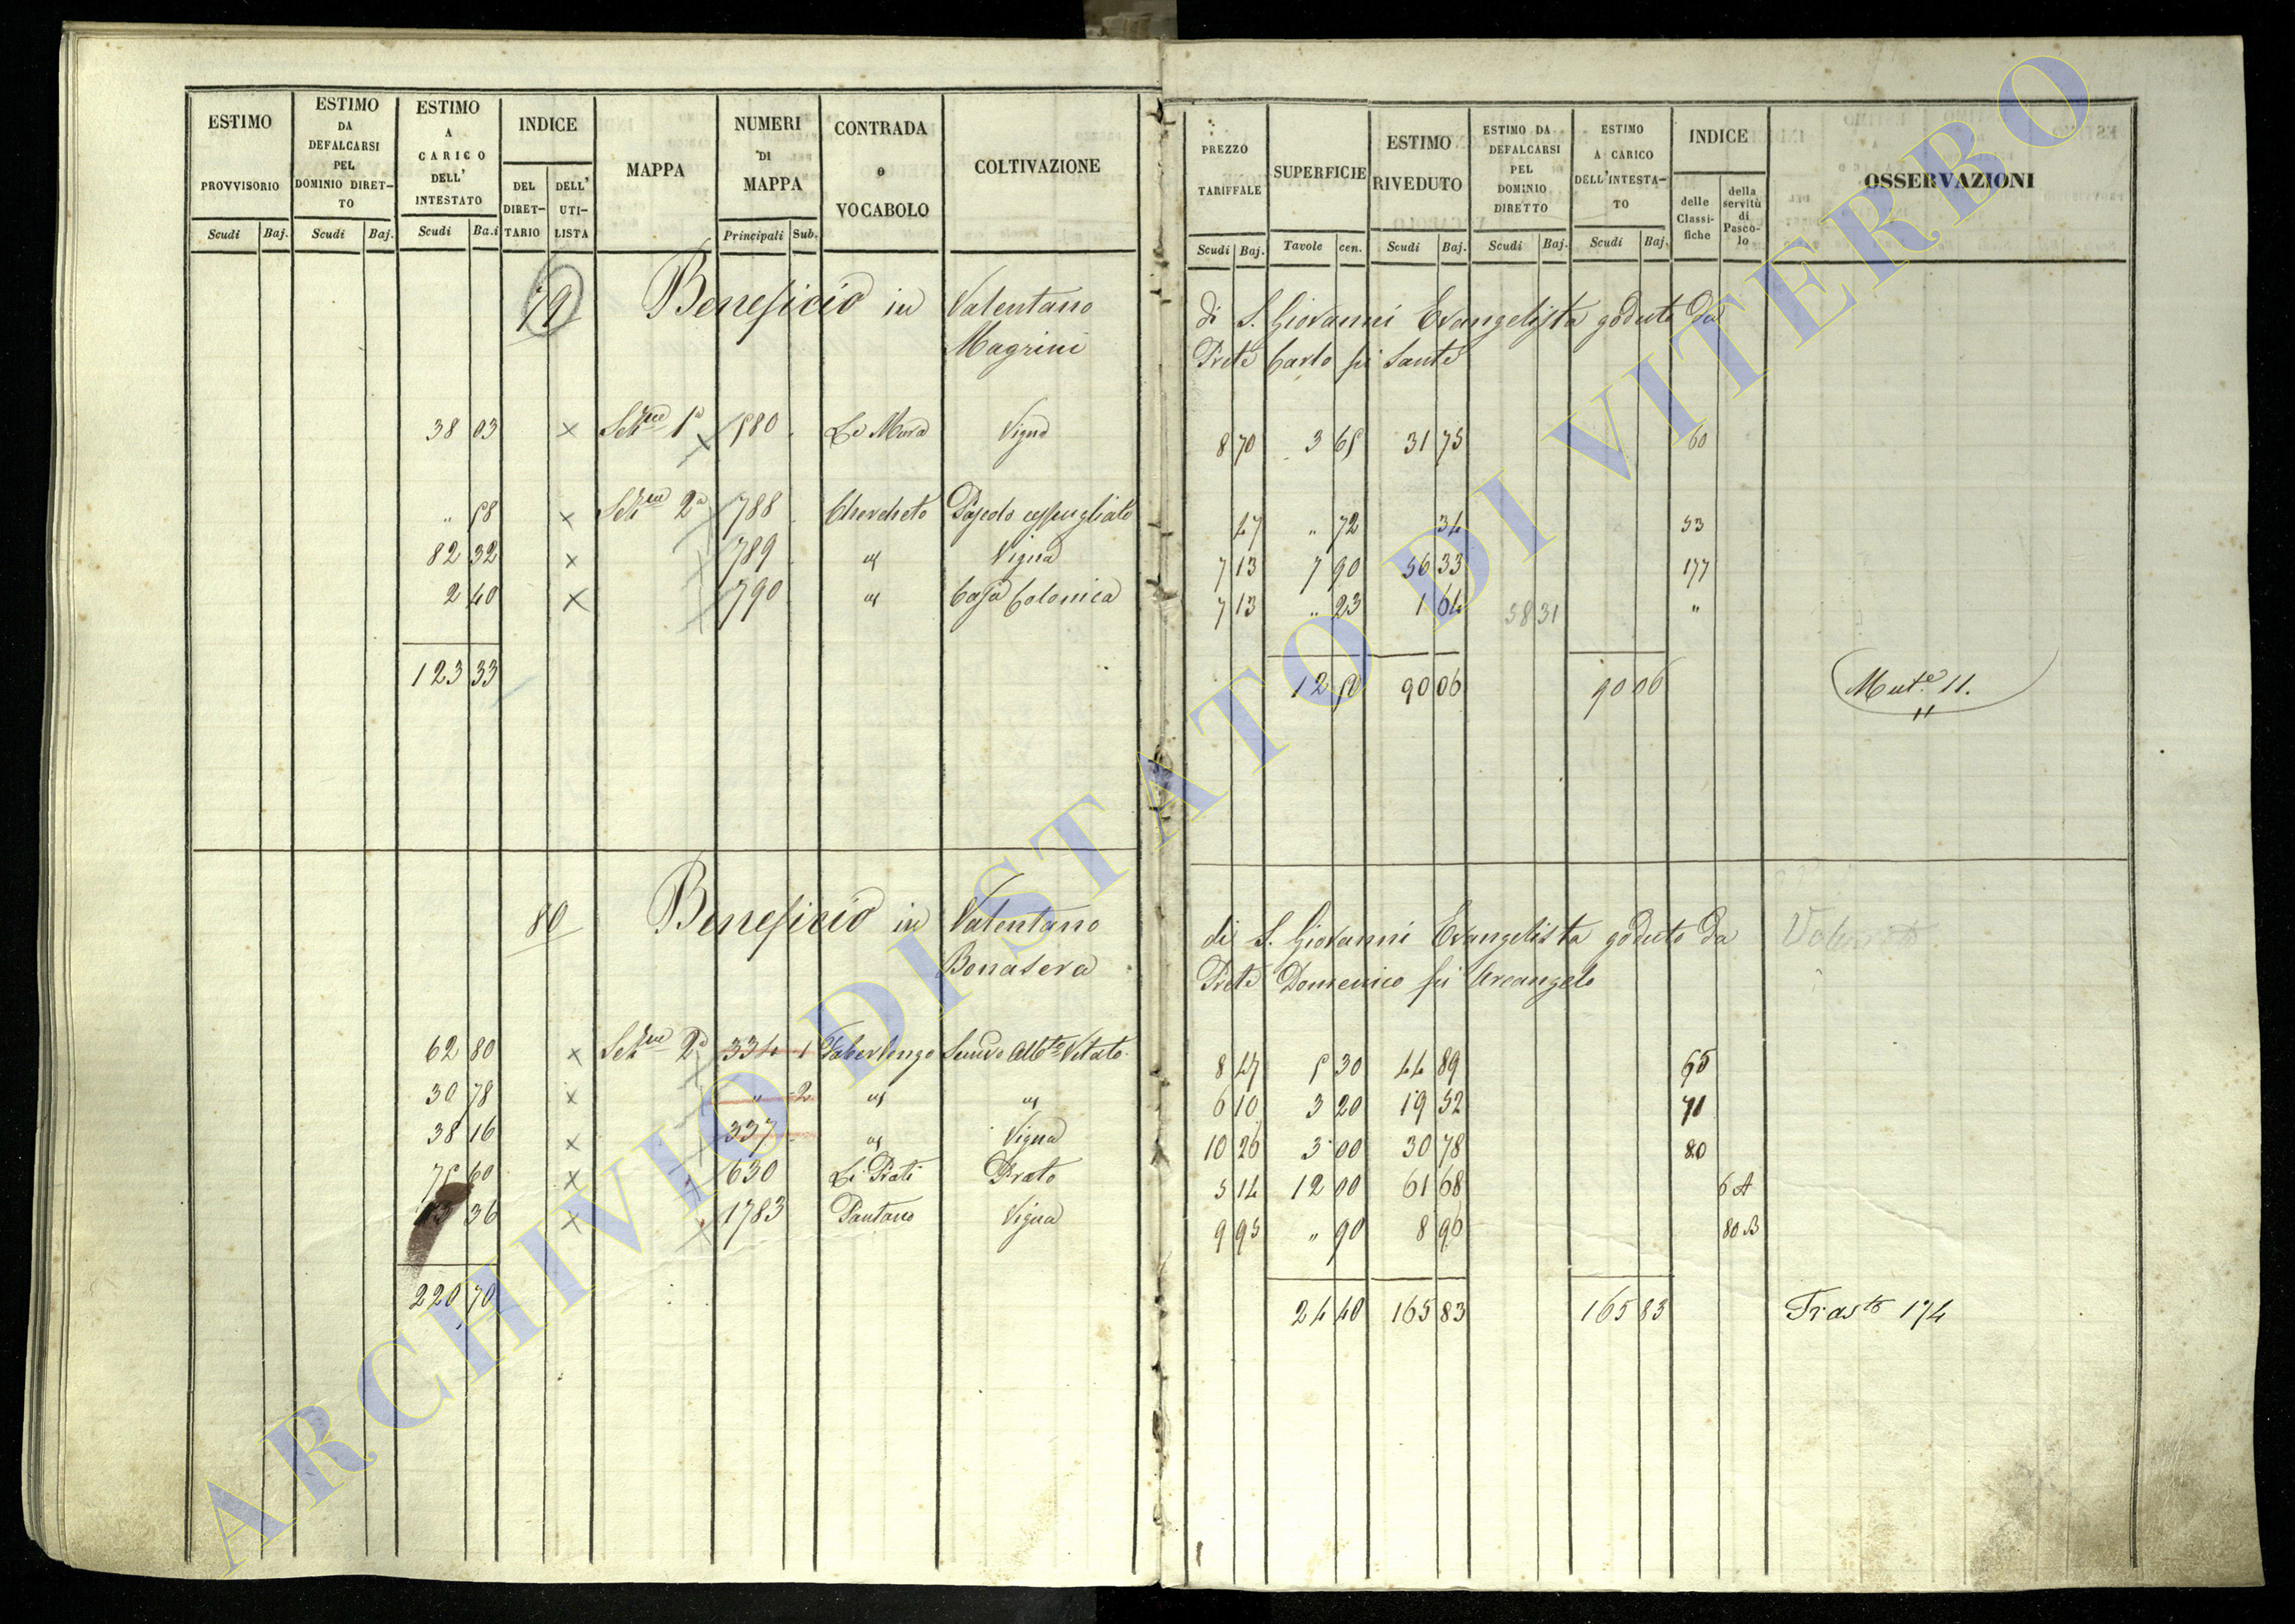 ESTIMO PROVVISORIO
Scudi Baj.
ESTIMO DA DEFALCARSI PEL DOMINIO DIRET-TO
Scudi Baj.
ESTIMO A CARICO DELL' INTESTATO
Scudi Ba.i
INDICE
DEL DIRET-TARIO
DELL' UTI-LISTA
MAPPA
NUMERI DI MAPPA
Principali Sub.
CONTRADA o VOCABOLO
COLTIVAZIONE
PREZZO TARIFFALE
Scudi Baj.
SUPERFICIE
Tavole cen.
ESTIMO RIVEDUTO
Scudi Baj.
ESTIMO DA DEFALCARSI PEL DOMINIO DIRETTO
Scudi Baj.
ESTIMO A CARICO DELL'INTESTA-TO
Scudi Baj.
INDICE
delle Classi-fiche
della servitù di Pasco-lo
OSSERVAZIONI
79 Beneficio in Valentano di S. Giovanni Evangelista goduto da
Magrini Prete Carlo fu Sante
38 03 × 1ª 580 Le Mura Vigna 8 70 3 65 31 75 60
" 58 × 2ª 788 Chercheto Pascolo cespugliato 47 " 72 34 53
82 32 × 789 Vigna 7 13 7 90 56 33 177
2 40 × 790 Casa Colonica 7 13 " 23 1 64 58 31 "
123 33 12 50 90 06 90 06 Mut.e 11.
80 Beneficio in Valentano di S. Giovanni Evangelista goduto da
Bonasera Prete Domenico fu Arcangelo
62 80 × 2ª 334 1 Vitato 8 47 5 30 44 89 65
30 78 × " 2 6 10 3 20 19 52 71
38 16 × 337 Vigna 10 26 3 00 30 78 80
75 60 × 630 Li Prati Prato 5 14 12 00 61 68 6 A
13 36 × 1783 Pantano Vigna 9 95 " 90 8 96 80 B
220 70 24 40 165 83 165 83 Trasto 174
ARCHIVIO DI STATO DI VITERBO